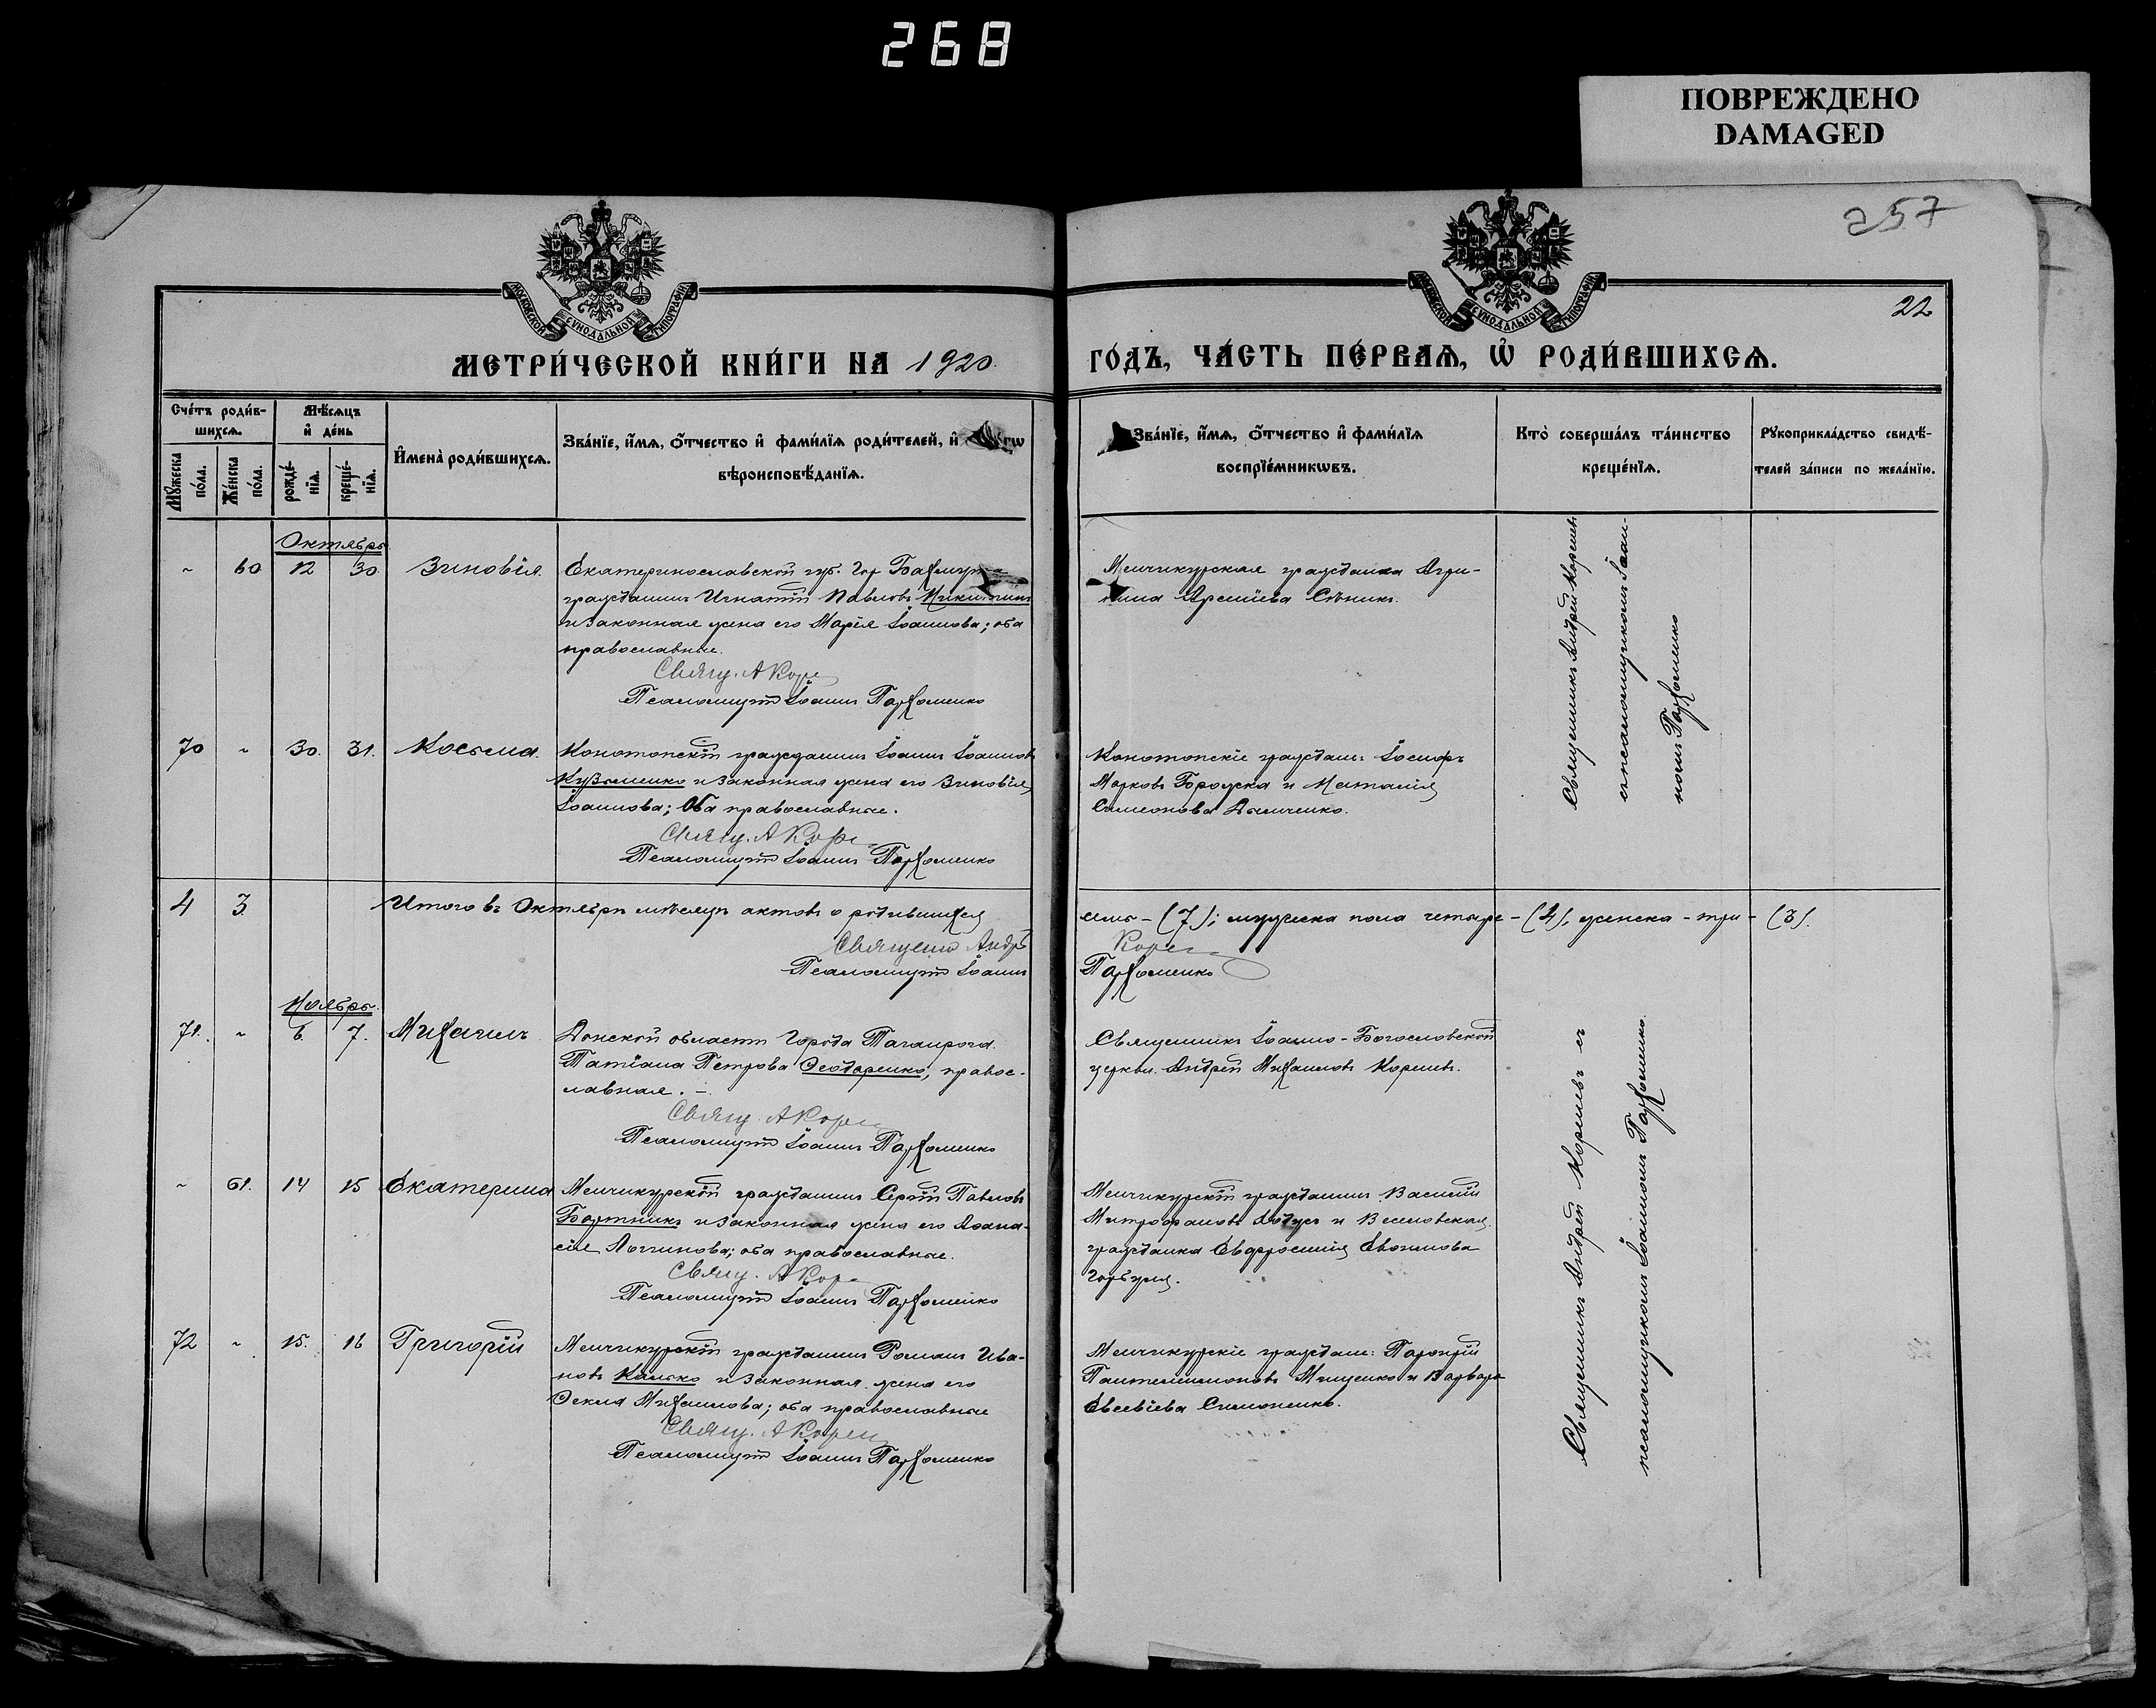 268
ПОВРЕЖДЕНО
DAMAGED
257
22
МОСКОВСКОЙ СѴНОДАЛЬНОЙ ТИПОГРАФІИ
МОСКОВСКОЙ СѴНОДАЛЬНОЙ ТИПОГРАФІИ
МЕТРИ́ЧЕСКОЙ КНИ́ГИ НА 1920.
ГО́ДЪ, ЧА́СТЬ ПЕ́РВАѦ, Ѡ҆ РОДИ́ВШИХСѦ.
Сче́тъ роди́в-
шихсѧ.
Мѣ́сѧцъ
и҆ де́нь
Мꙋ́жеска
по́ла.
Же́нска
по́ла.
рожде́-
нїѧ.
креще́-
нїѧ.
И҆мена̀ роди́вшихсѧ.
Зва́нїе, и҆́мѧ, ѻ҆́тчество и҆ фами́лїѧ роди́телей, и҆
вѣроисповѣ́данїѧ.
Зва́нїе, и҆́мѧ, ѻ҆́тчество и҆ фами́лїѧ
воспрїе́мникѡвъ.
Кто̀ соверша́лъ та́инство
креще́нїѧ.
Рꙋкоприкла́дство свидѣ́-
телей за́писи по жела́нїю.
Октябрь.
60 12 30 Зиновія.
Екатеринославской губ. Гор Бахмут
гражданинъ Игнатій Павловъ Никитинъ
и законная жена его Марія Іоаннова; оба
православные.
Свящ. А Коре
Псаломщикъ Іоаннъ Пархоменко
Менчикурская гражданка Агри-
пина Арсеніева Сѣникъ.
Священникъ Андрей Кореневъ
съ псаломщикомъ Іоан-
номъ Пархоменко
70 30. 31. Косьма.
Конотопскій гражданинъ Іоаннъ Іоанновъ
Кузьменко и законная жена его Зиновія
Іоаннова; Оба православные.
Свящ. А Коре
Псаломщикъ Іоаннъ Пархоменко
Конотопскіе граждане: Іосифъ
Марковъ Бородка и Наталія
Симеонова Демченко.
4 3. Итого въ Октябрѣ мѣсяцѣ актовъ о родившихся
семь - (7); мужеска пола четыре - (4), женска - три - (3).
Священ Андр
Коре
Псаломщикъ Іоаннъ
Пархоменко
Ноябрь.
71. 6. 7. Михаилъ
Донской области Города Таганрога.
Татіана Петрова Ѳеодоренко, право-
славная. -
Свящ. А Коре
Псаломщикъ Іоаннъ Пархоменко
Священникъ Іоанно-Богословской
церкви. Андрей Михаиловъ Кореневъ.
Священникъ Андрей Кореневъ съ
псаломщикомъ Іоанномъ Пархоменко.
61. 14 15 Екатерина
Менчикурскій гражданинъ Сергій Павловъ
Бортникъ и законная жена его Аѳана-
сія Логгинова; оба православные.
Свящ. А Коре
Псаломщикъ Іоаннъ Пархоменко
Менчикурскій гражданинъ Василій
Митрофановъ и Веселовская
гражданка Евфросинія Евѳимова
Горбуля.
72 15. 16 Григорій
Менчикурскій гражданинъ Романъ Ива-
новъ Калько и законная жена его
Ѳекла Михаилова; оба православные
Свящ. А Коре
Псаломщикъ Іоаннъ Пархоменко
Менчикурскіе граждане: Порфирій
Пантелеимоновъ Мищенко и Варвара
Евсевіева Симоненко.